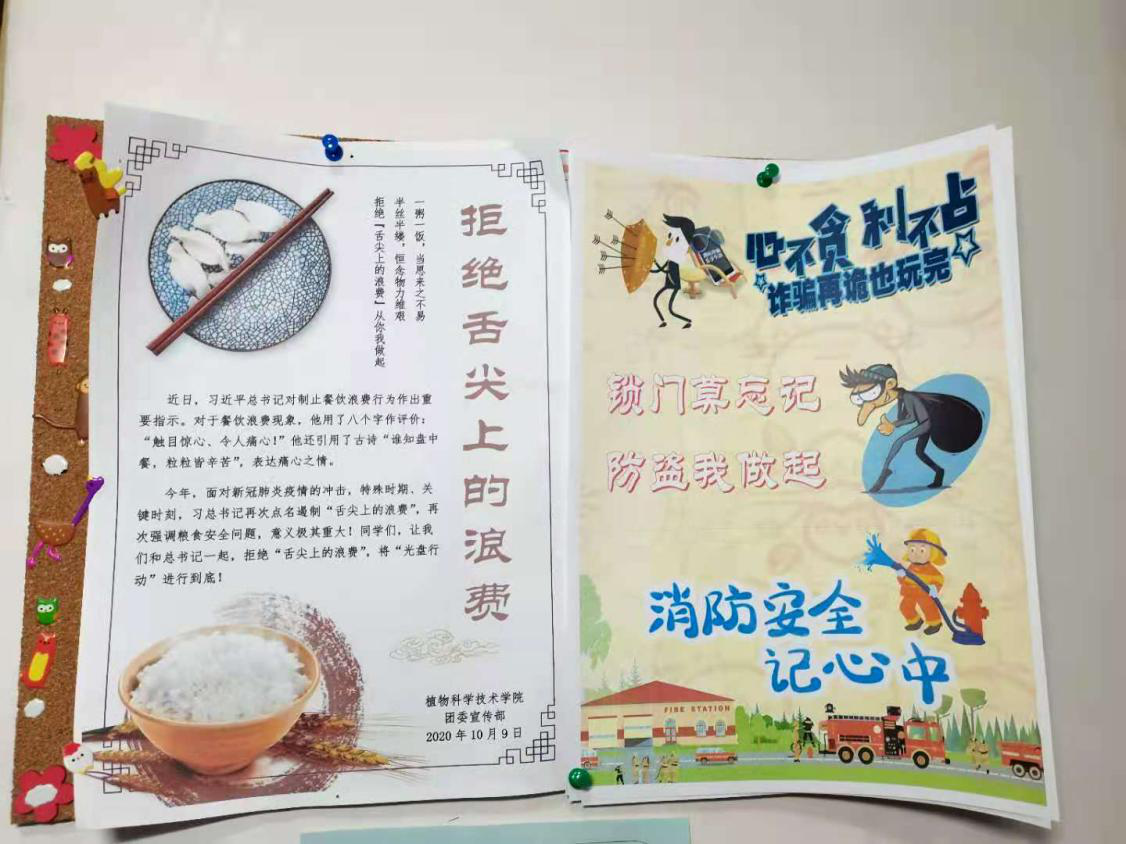 拒绝舌尖上的浪费
一粥一饭，当思来之不易
半丝半缕，恒念物力维艰
拒绝『舌尖上的浪费』从你我做起
近日，习近平总书记对制止餐饮浪费行为作出重
要指示。对于餐饮浪费现象，他用了八个字作评价：
“触目惊心、令人痛心！”他还引用了古诗“谁知盘中
餐，粒粒皆辛苦”，表达痛心之情。
今年，面对新冠肺炎疫情的冲击，特殊时期、关
键时刻，习总书记再次点名遏制“舌尖上的浪费”，再
次强调粮食安全问题，意义极其重大！同学们，让我
们和总书记一起，拒绝“舌尖上的浪费”，将“光盘行
动”进行到底！
植物科学技术学院
团委宣传部
2020年10月9日
心不贪 利不占
诈骗再诡也玩完
锁门草忘记
防盗我做起
消防安全
记心中
FIRE STATION